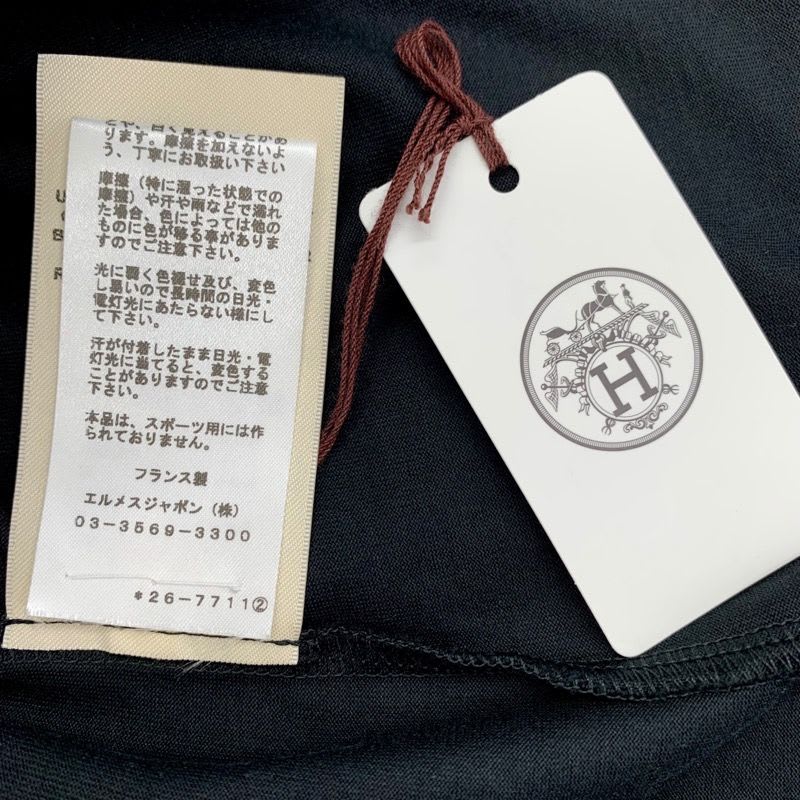 とや、白く見えることがあ
ります。摩擦を加えないよ
う、丁寧にお取扱い下さい
摩擦（特に湿った状態での
摩擦）や汗や雨などで濡れ
た場合、色によっては他の
ものに色が移る事がありま
すのでご注意下さい。
光に弱く色褪せ及び、変色
し易いので長時間の日光・
電灯光にあたらない様にし
て下さい。
汗が付着したまま日光・電
灯光に当てると、変色する
ことがありますのでご注意
下さい。
本品は、スポーツ用には作
られておりません。
フランス製
エルメスジャポン（株）
03-3569-3300
*26-7711②
H